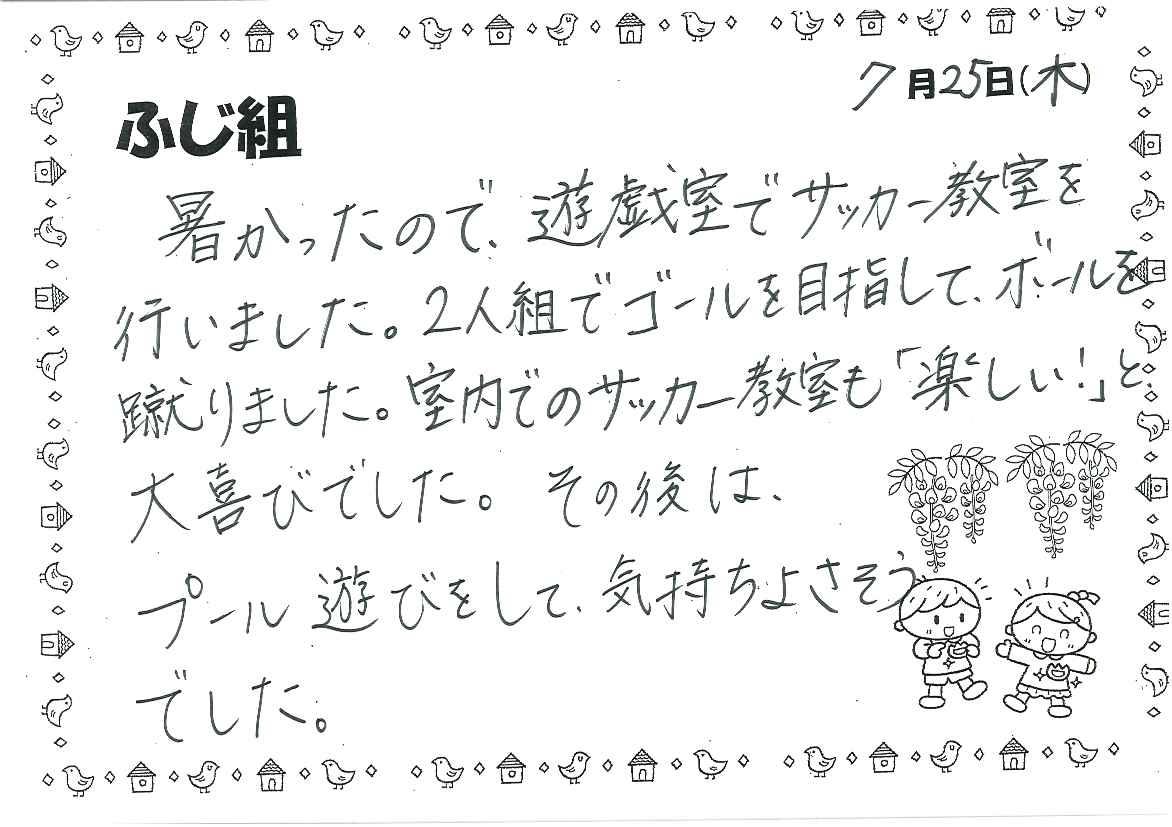 7月25日(木)
ふじ組
暑かったので、遊戯室でサッカー教室を
行いました。2人組でゴールを目指して、ボールを
蹴りました。室内でのサッカー教室も「楽しい!」と、
大喜びでした。その後は、
プール遊びをして、気持ちよさそう
でした。